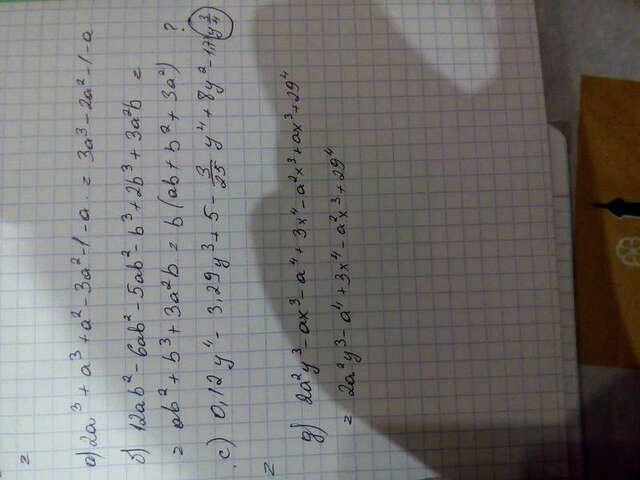 а) 2a³ + a³ + a² - 3a² - 1 - a = 3a³ - 2a² - 1 - a
б) 12ab² - 6ab² - 5ab² - b³ + 2b³ + 3a²b =
= ab² + b³ + 3a²b = b (ab + b² + 3a²)
с) 0,12y⁴ - 3,29y³ + 5 - 3/25 y⁴ + 8y² - 17 y ?
=
д) 2a²y³ - ax³ - a⁴ + 3x⁴ - a²x³ + ax³ + 29⁴
= 2a²y³ - a⁴ + 3x⁴ - a²x³ + 29⁴